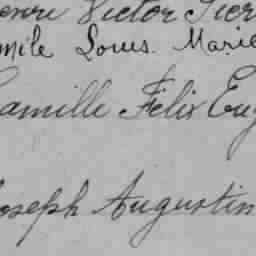 Henri Victor Pier
Emile Louis. Marie
Camille Félix Eug
Joseph Augustin